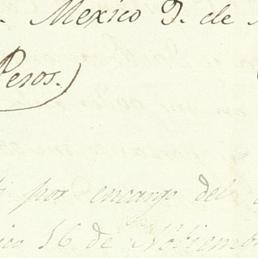 Mexico 9. de
Pesos.)
por encargo del
16 de Noviembre